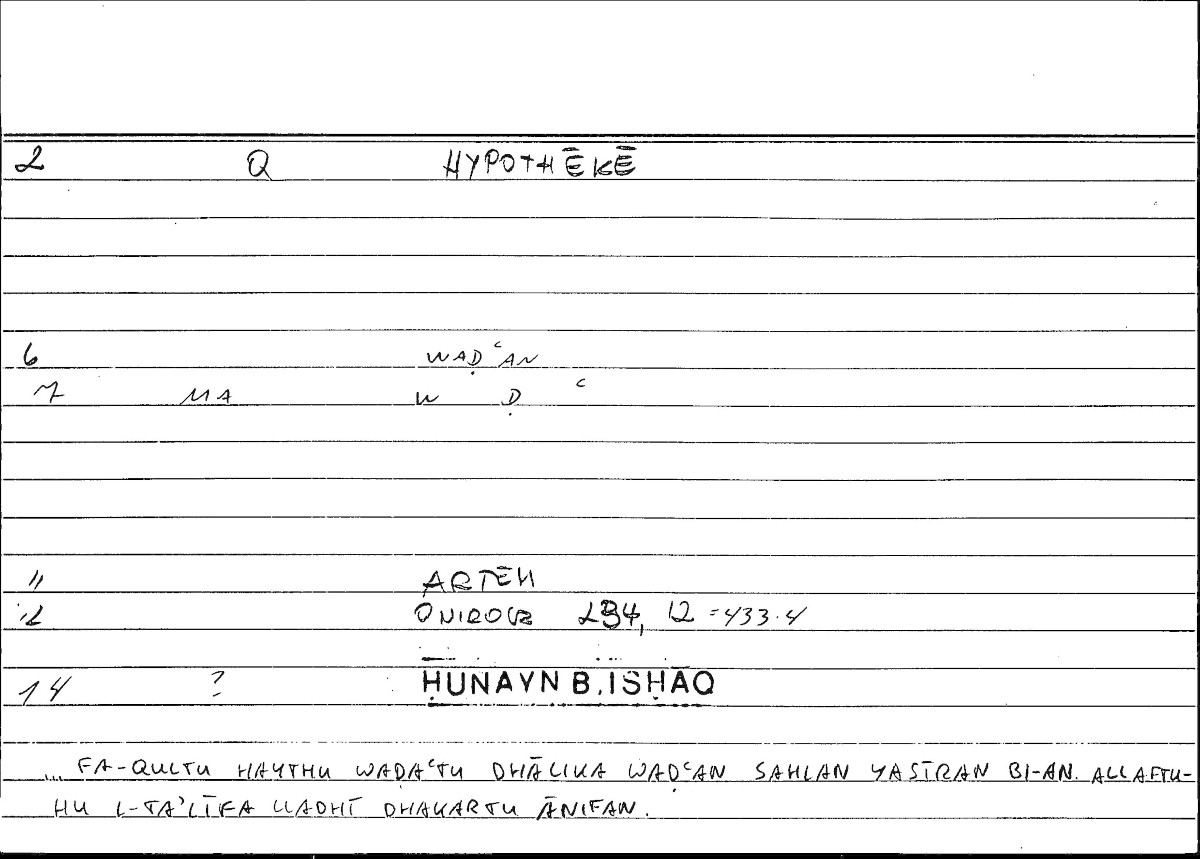 2 Q HYPOTHĒKĒ
6 WAḌʿAN
7 MA W Ḍ ʿ
11 ARTEM
12 ONIROCR 234, 12 = 433.4
14 ? ḤUNAYN B. ISḤĀQ
... FA-QULTU HAYTHU WADAʿTU DHĀLIKA WAḌʿAN SAHLAN YASĪRAN BI-AN. ALLAFTU-
HU L-TA'LĪFA LLADHĪ DHAKARTU ĀNIFAN.